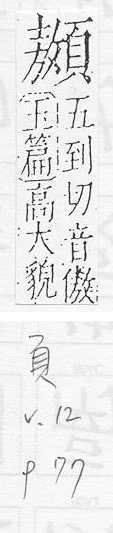 五到切音傲
玉篇高大貌
頁
v. 12
p 77